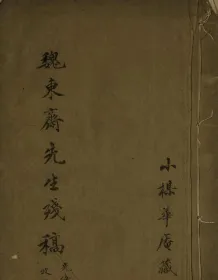 魏東齋先生殘稿
小棲華庵藏